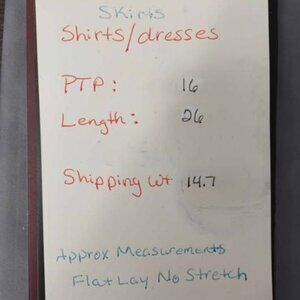 Skirts
Shirts/dresses
PTP: 16
Length: 26
Shipping wt 14.7
Approx Measurements
Flat Lay, No Stretch